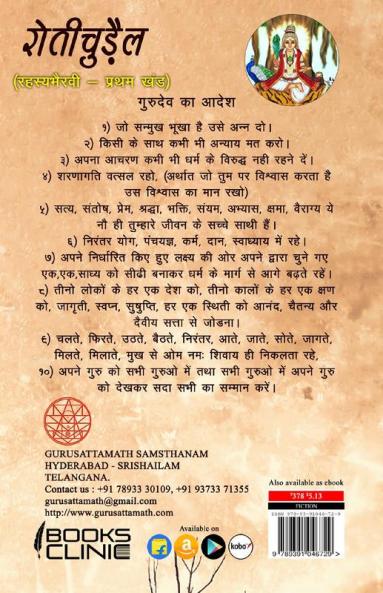 रोतीचुड़ैल
(रहस्यभैरवी – प्रथम खंड)
गुरुदेव का आदेश
१) जो सन्मुख भूखा है उसे अन्न दो।
२) किसी के साथ कभी भी अन्याय मत करो।
३) अपना आचरण कभी भी धर्म के विरुद्ध नही रहने दें।
४) शरणागति वत्सल रहो, (अर्थात जो तुम पर विश्वास करता है
उस विश्वास का मान रखो)
५) सत्य, संतोष, प्रेम, श्रद्धा, भक्ति, संयम, अभ्यास, क्षमा, वैराग्य ये
नौ ही तुम्हारे जीवन के सच्चे साथी हैं।
६) निरंतर योग, पंचयज्ञ, कर्म, दान, स्वाध्याय में रहे।
७) अपने निर्धारित किए हुए लक्ष्य की ओर अपने द्वारा चुने गए
एक,एक,साध्य को सीढी बनाकर धर्म के मार्ग से आगे बढ़ते रहें।
८) तीनो लोकों के हर एक देश को, तीनो कालों के हर एक क्षण
को, जागृती, स्वप्न, सुषुप्ति, हर एक स्थिती को आनंद, चैतन्य और
दैवीय सत्ता से जोडना।
९) चलते, फिरते, उठते, बैठते, निरंतर, आते, जाते, सोते, जागते,
मिलते, मिलाते, मुख से ओम नमः शिवाय ही निकलता रहे,
१०) अपने गुरु को सभी गुरुओं में तथा सभी गुरुओ में अपने गुरु
को देखकर सदा सभी का सम्मान करें।
GURUSATTAMATH SAMSTHANAM
HYDERABAD - SRISHAILAM
TELANGANA.
Contact us : +91 78933 30109, +91 93733 71355
gurusattamath@gmail.com
http://www.gurusattamath.com
Also available as ebook
₹378 $5.13
FICTION
ISBN 978-93-91046-72-9
9 789391 046729 >
BOOKS
CLINIC
Available on
a
kobo